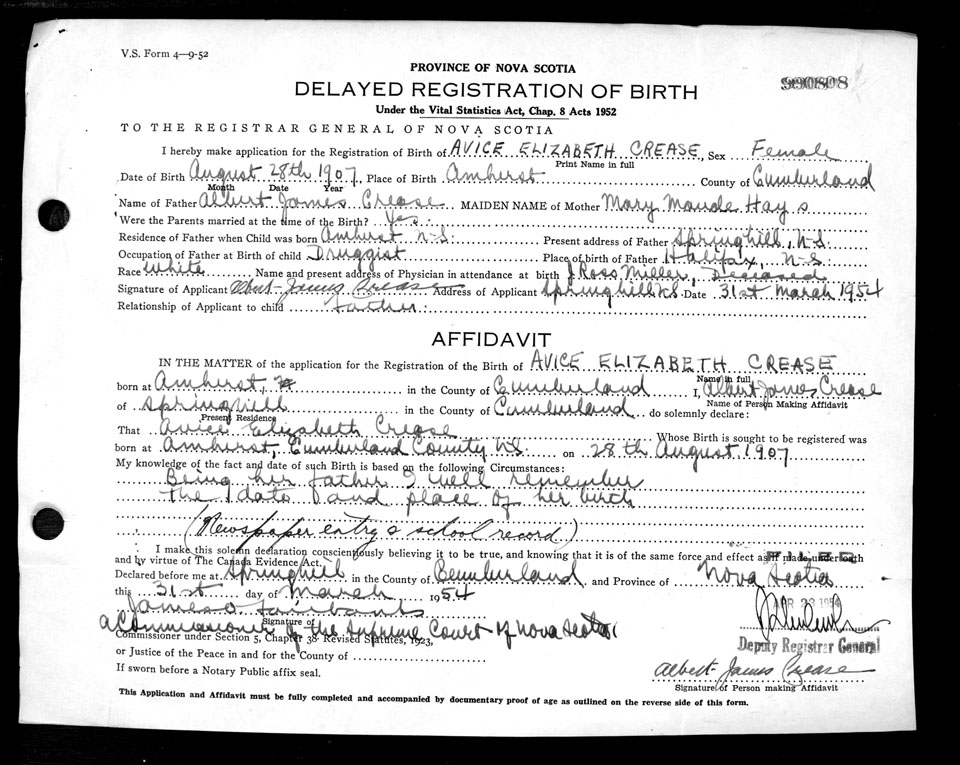 V.S. Form 4—9-52
PROVINCE OF NOVA SCOTIA
DELAYED REGISTRATION OF BIRTH
Under the Vital Statistics Act, Chap. 8 Acts 1952
TO THE REGISTRAR GENERAL OF NOVA SCOTIA
I hereby make application for the Registration of Birth of AVICE ELIZABETH CREASE, Sex Female
Print Name in full
Date of Birth August 28th 1907, Place of Birth Amherst County of Cumberland
Month Date Year
Name of Father Albert James Crease MAIDEN NAME of Mother Mary Maude Hays
Were the Parents married at the time of the Birth? Yes.
Residence of Father when Child was born Amherst N.S. Present address of Father Springhill, N.S.
Occupation of Father at Birth of child Druggist Place of birth of Father Halifax, N.S.
Race White Name and present address of Physician in attendance at birth J Ross Miller, Deceased
Signature of Applicant Albert James Crease Address of Applicant Springhill N.S. Date 31st March 1954
Relationship of Applicant to child father.
AFFIDAVIT
IN THE MATTER of the application for the Registration of the Birth of AVICE ELIZABETH CREASE
Name in full
born at Amherst, in the County of Cumberland I, Albert James Crease
Name of Person Making Affidavit
of Springhill in the County of Cumberland do solemnly declare:
Present Residence
That Avice Elizabeth Crease Whose Birth is sought to be registered was
born at Amherst, Cumberland County N.S. on 28th August 1907
My knowledge of the fact and date of such Birth is based on the following Circumstances:
Being her father I well remember
the date and place of her birth
(Newspaper entry & school record)
I make this solemn declaration conscientiously believing it to be true, and knowing that it is of the same force and effect as if made under oath
and by virtue of The Canada Evidence Act.
Declared before me at Springhill in the County of Cumberland and Province of Nova Scotia
this 31st day of March 1954
APR 23 1954
James O Fairbanks
Signature of
A Commissioner of the Supreme Court of Nova Scotia
Commissioner under Section 5, Chapter 38 Revised Statutes, 1923,
Deputy Registrar General
or Justice of the Peace in and for the County of
Albert James Crease
If sworn before a Notary Public affix seal.
Signature of Person making Affidavit
This Application and Affidavit must be fully completed and accompanied by documentary proof of age as outlined on the reverse side of this form.